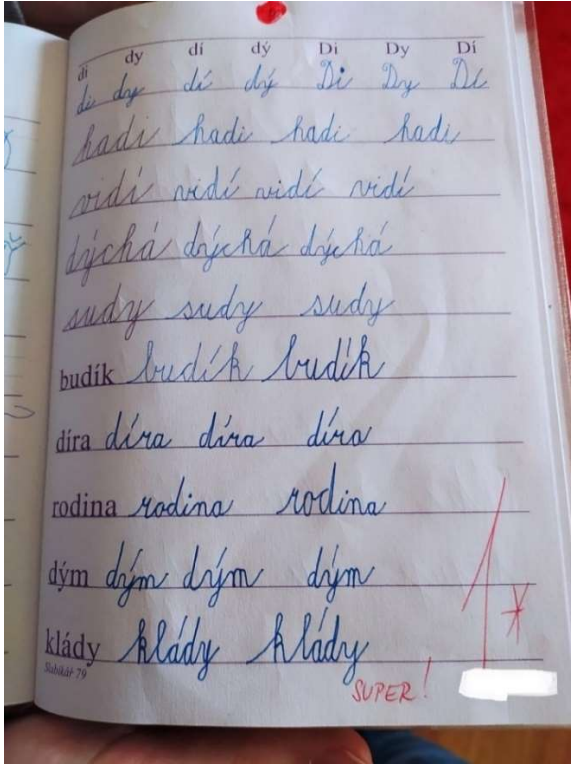 di dy dí dý Di Dy Dí
di dy dí dý Di Dy Dí
hadi hadi hadi hadi
vidí vidí vidí vidí
dýchá dýchá dýchá
sudy sudy sudy
budík budík budík
díra díra díra díra
rodina rodina rodina
dým dým dým dým
klády klády klády
Slabikář 79
1*
SUPER!